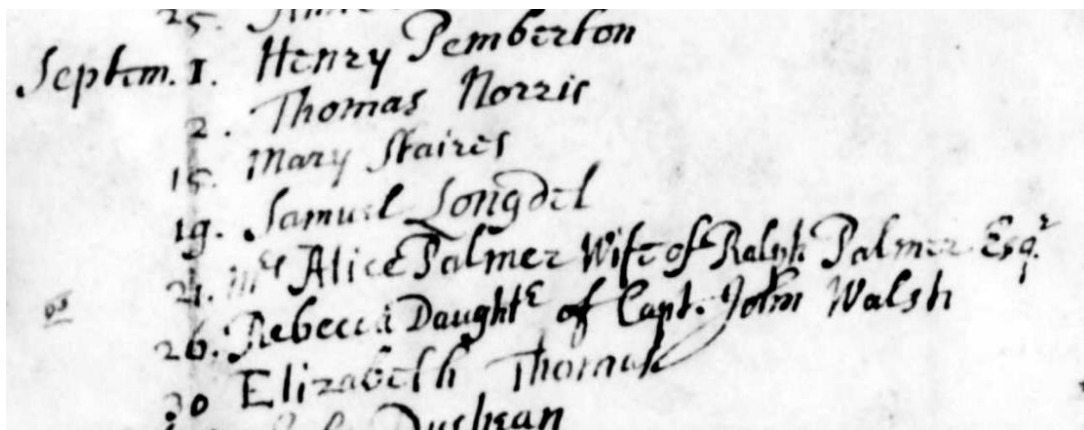 25.
Septem. 1. Henry Pemberton
2. Thomas Norris
15. Mary Staires
19. Samuel Longdel
21. Mrs Alice Palmer Wife of Ralph Palmer Esqr.
26. Rebecca Daughtr of Capt. John Walsh
30 Elizabeth Thomas